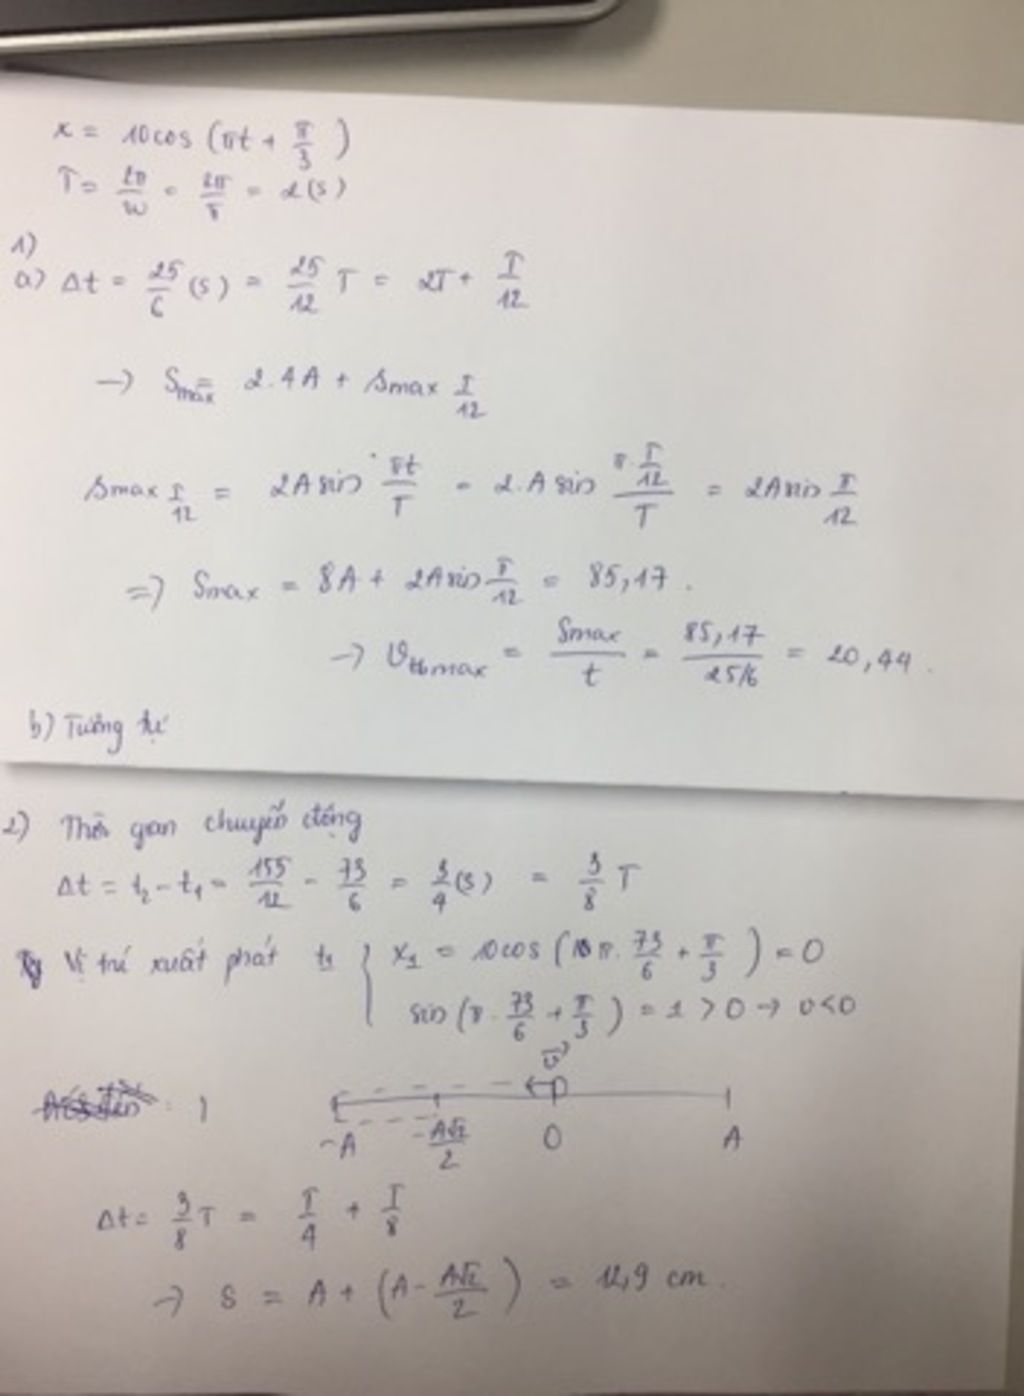 x = 10cos (πt + π/3)
T = 2π/ω = 2π/π = 2(s)
1)
a) Δt = 25/6 (s) = 25/12 T = 2T + T/12
→ Smax = 2.4A + Smax T/12
Smax T/12 = 2A sin πt/T = 2.A sin (π.T/12)/T = 2A sin π/12
=> Smax = 8A + 2A sin π/12 = 85,17.
→ Vtbmax = Smax/t = 85,17/25/6 = 20,44.
b) Tương tự
2) Thời gian chuyển động
Δt = t2 - t1 = 155/12 - 73/6 = 3/4 (s) = 3/8 T
Vị trí xuất phát t1 { x1 = 10cos (π. 73/6 + π/3) = 0
sin (π. 73/6 + π/3) = 1 > 0 → v<0
v
-A -A√2/2 O A
Δt = 3/8 T = T/4 + T/8
→ S = A + (A - A√2/2) = 12,9 cm.